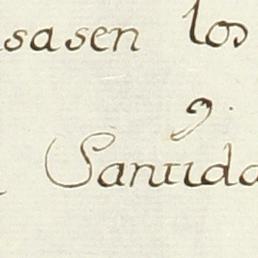 sasen los
9.
Santida